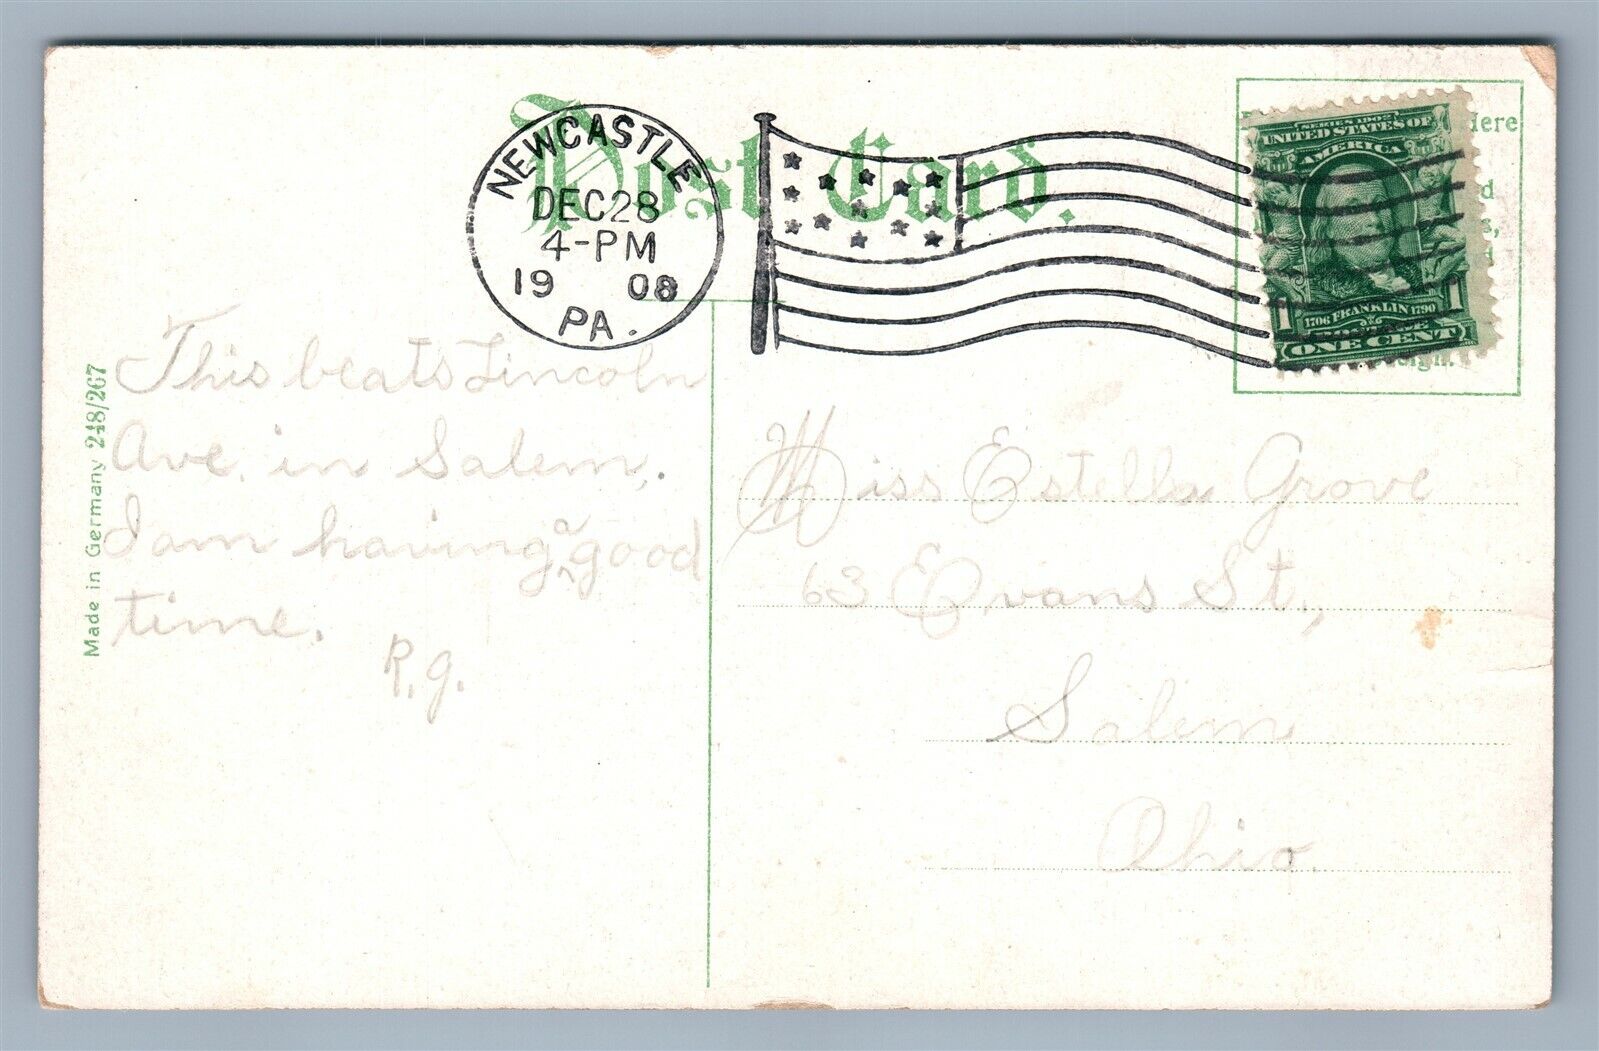 Post Card.
NEWCASTLE
DEC 28
4-PM
19 08
PA.
Here
SERIES 1902
UNITED STATES OF
AMERICA
1706 FRANKLIN 1790
1 1
ONE CENT
This beats Lincoln
Ave. in Salem.
I am having a good
time.
R.g.
Miss Estella Grove
63 Evans St.,
Salem
Ohio
Made in Germany 248/267